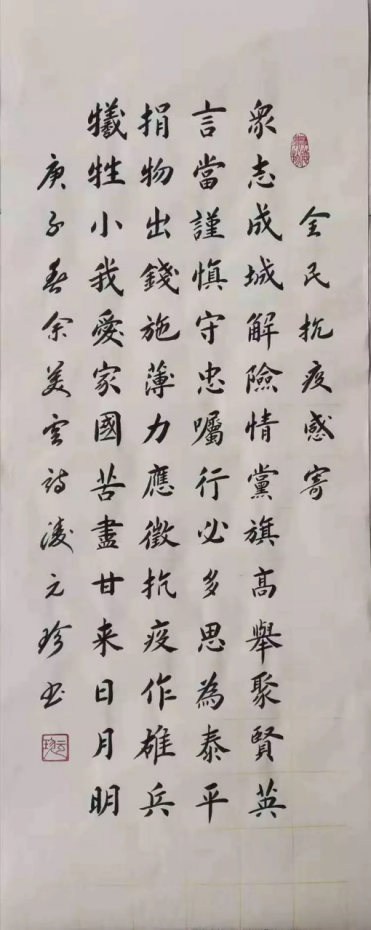 全民抗疫感寄
衆志成城解險情黨旗高舉聚賢英
言當謹慎守忠囑行必多思為泰平
捐物出錢施薄力應徵抗疫作雄兵
犧牲小我愛家國苦盡甘来日月明
庚子春余美雲詩凌元珍书